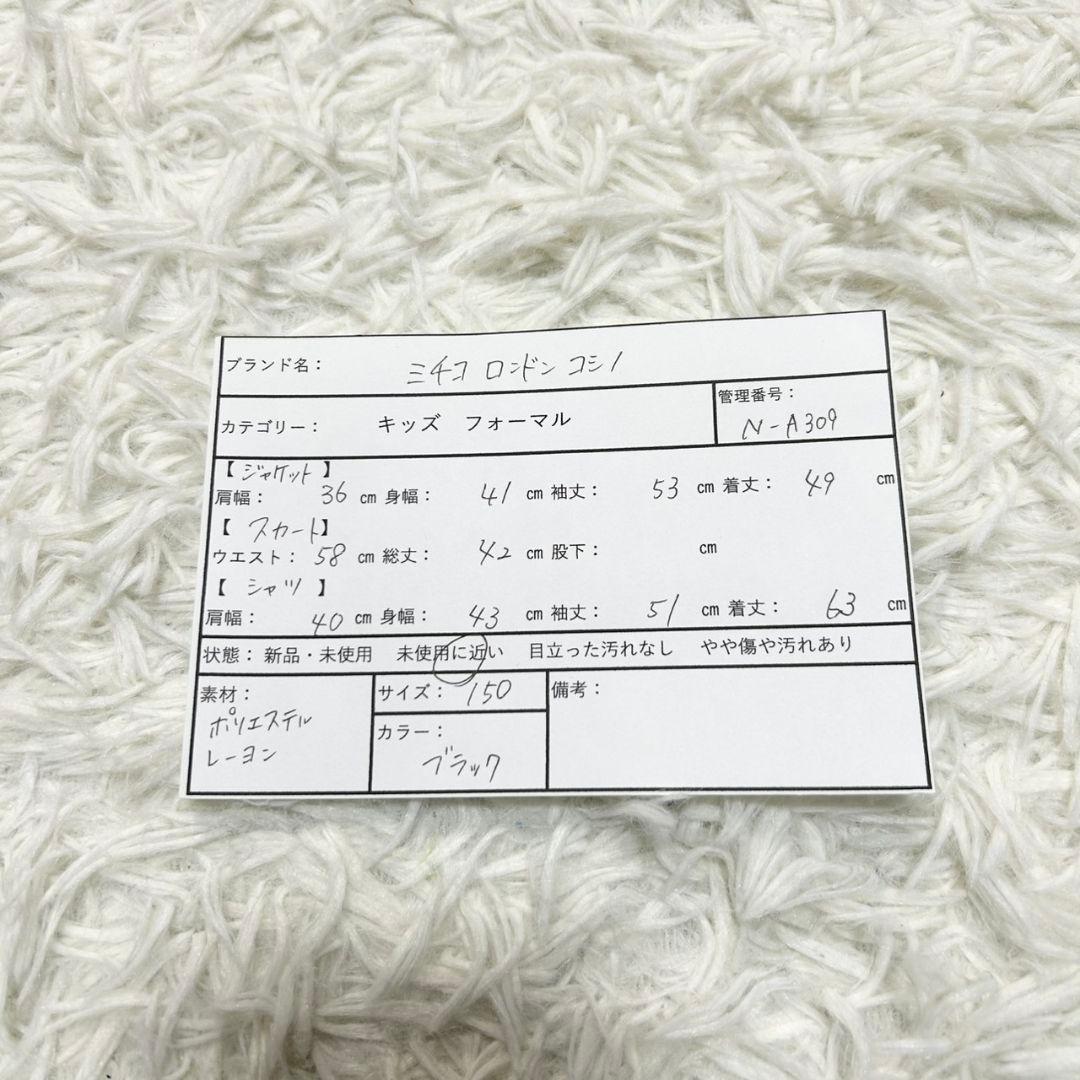 ブランド名： ミチコ ロンドン コシノ
カテゴリー： キッズ フォーマル
管理番号：
N-A309
【 ジャケット 】
肩幅： 36 cm 身幅： 41 cm 袖丈： 53 cm 着丈： 49 cm
【 スカート 】
ウエスト： 58 cm 総丈： 42 cm 股下： cm
【 シャツ 】
肩幅： 40 cm 身幅： 43 cm 袖丈： 51 cm 着丈： 63 cm
状態： 新品・未使用 未使用に近い 目立った汚れなし やや傷や汚れあり
素材：
ポリエステル
レーヨン
サイズ： 150
カラー：
ブラック
備考：